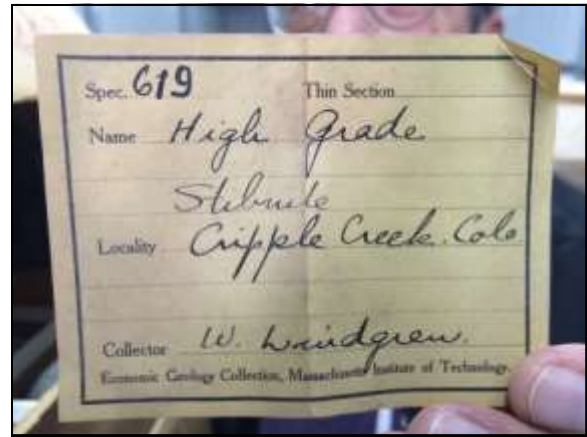 Spec. 619 Thin Section
Name High Grade
Stibnite
Locality Cripple Creek. Colo
Collector W. Lindgren.
Economic Geology Collection, Massachusetts Institute of Technology.